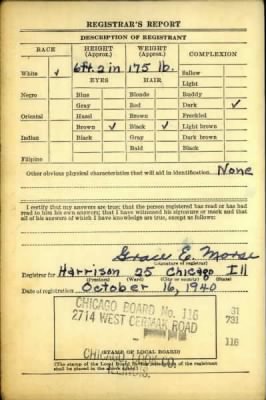 REGISTRAR'S REPORT
DESCRIPTION OF REGISTRANT
RACE HEIGHT (Approx.) WEIGHT (Approx.) COMPLEXION
White ✓ 6ft. 2 in 175 lb. Sallow
EYES HAIR Light
Negro Blue Blonde Ruddy
Gray Red Dark ✓
Oriental Hazel Brown Freckled
Brown ✓ Black ✓ Light brown
Indian Black Gray Dark brown
Bald Black
Filipino
Other obvious physical characteristics that will aid in identification None
I certify that my answers are true; that the person registered has read or has had read to him his own answers; that I have witnessed his signature or mark and that all of his answers of which I have knowledge are true, except as follows:
Grace E. Morse
(Signature of registrar)
Registrar for Harrison 25 Chicago Ill
(Precinct) (Ward) (City or county) (State)
Date of registration October 16, 1940
CHICAGO BOARD No. 116
2714 WEST CERMAK ROAD
CHICAGO, COOK CO.
ILLINOIS.
31
731
116
(STAMP OF LOCAL BOARD)
(The stamp of the Local Board having jurisdiction of the registrant shall be placed in the above space.)